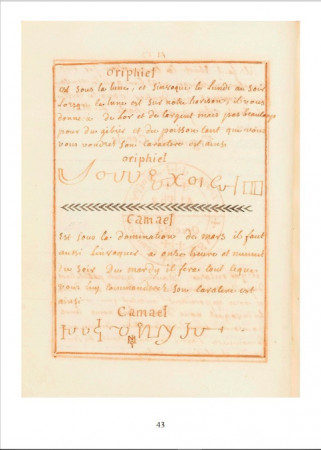 oriphiel
est sous la lune, et s'invoque le lundi au soir
lorsque la lune est sur notre horison, il vous
donnera de l'or et de l'argent mais pas beaucoup
pour du gibier et du poisson tant que vous
vous voudrez son caractere est ainsi
oriphiel
Camael
est sous la domination de mars il faut
aussi l'invoquer a onze heures et minuit
au soir du mardy il fera tout
vous luy commanderez son caractere est
ainsi
Camael
43